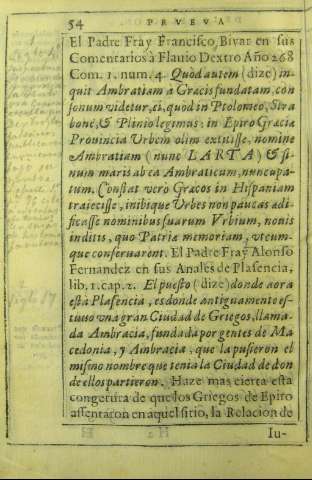 54 PRVEVA
El Padre Fray Francisco Bivar en sus
Comentarios à Flavio Dextro Año 268
Com. 1. num. 4. Quòd autem (dize) in-
quit Ambratiam à Græcis fundatam, con
sonum videtur, ei, quòd in Ptolomeo, Stra
bone, & Plinio legimus: in Epiro Græciæ
Provincia Urbem olim extitisse, nomine
Ambratiam (nunc LARTA) & si-
num maris ab ea Ambraticum, nuncupa-
tum. Constat verò Græcos in Hispaniam
traiecisse, inibique Urbes non paucas ædi
ficasse nominibus suarum Vrbium, nonis
inditis, quo Patriæ memoriam, vtcum-
que conservarent. El Padre Fray Alonso
Fernandez en sus Anales de Plasencia,
lib. 1. cap. 2. El puesto (dize) donde aora
està Plasencia, es donde antiguamente es-
tuvo vna gran Ciudad de Griegos, llama-
da Ambracia, fundada por gentes de Ma
cedonia, y Ambracia, que la pusieron el
mismo nombre que tenia la Ciudad de don
de ellos partieron. Haze mas cierta esta
congetura de que los Griegos de Epiro
assentaron en aquel sitio, la Relacion de
Iu-